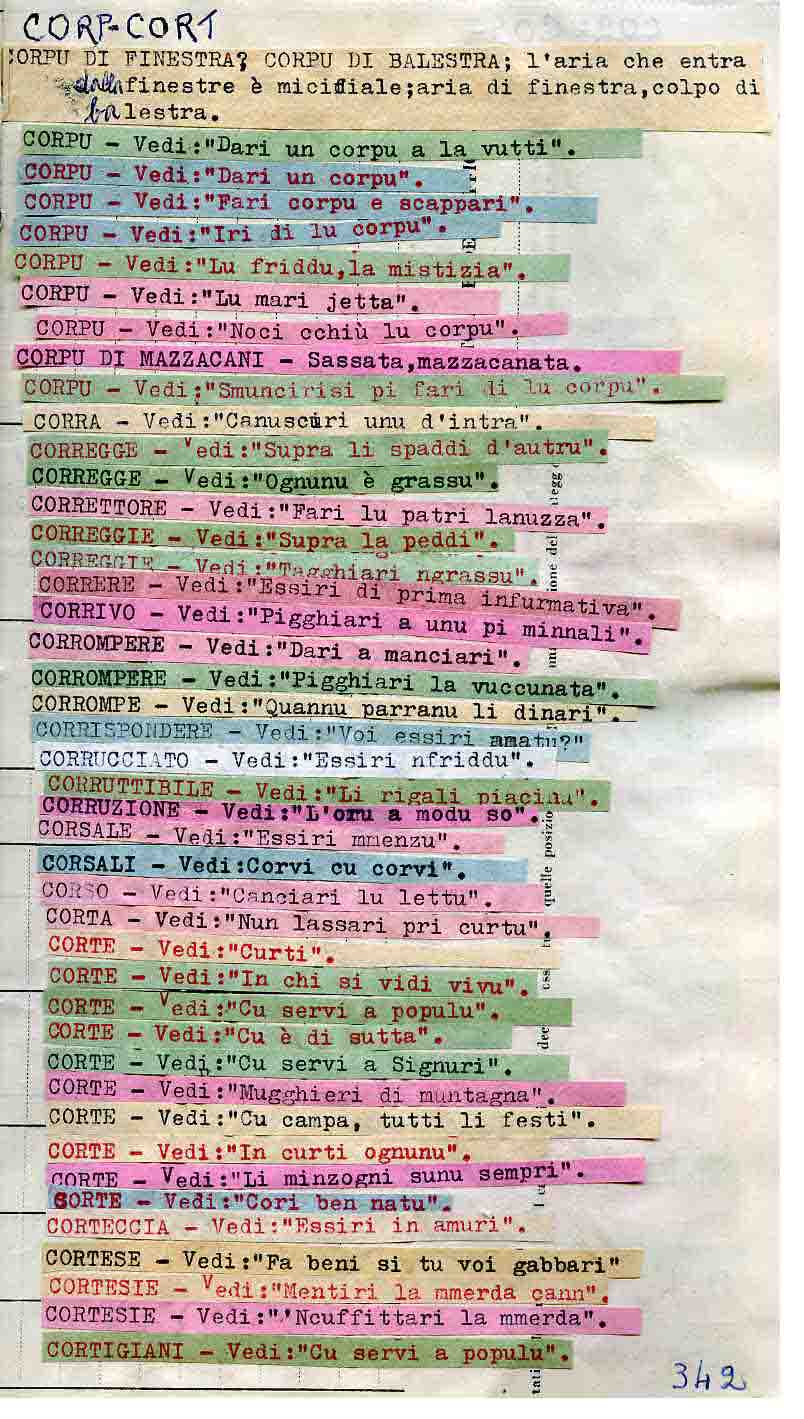 CORP-CORT
CORPU DI FINESTRA? CORPU DI BALESTRA; l'aria che entra
dalla finestre è micidiale;aria di finestra,colpo di
balestra.
CORPU - Vedi:"Dari un corpu a la vutti".
CORPU - Vedi:"Dari un corpu".
CORPU - Vedi:"Fari corpu e scappari".
CORPU - Vedi:"Iri di lu corpu".
CORPU - Vedi:"Lu friddu,la mistizia".
CORPU - Vedi:"Lu mari jetta".
CORPU - Vedi:"Noci cchiù lu corpu".
CORPU DI MAZZACANI - Sassata,mazzacanata.
CORPU - Vedi:"Smuncirisi pi fari di lu corpu".
CORRA - Vedi:"Canusciri unu d'intra".
CORREGGE - Vedi:"Supra li spaddi d'autru".
CORREGGE - Vedi:"Ognunu è grassu".
CORRETTORE - Vedi:"Fari lu patri lanuzza".
CORREGGIE - Vedi:"Supra la peddi".
CORREGGIE - Vedi:"Tagghiari ngrassu".
CORRERE - Vedi:"Essiri di prima infurmativa".
CORRIVO - Vedi:"Pigghiari a unu pi minnali".
CORROMPERE - Vedi:"Dari a manciari".
CORROMPERE - Vedi:"Pigghiari la vuccunata".
CORROMPE - Vedi:"Quannu parranu li dinari".
CORRISPONDERE - Vedi:"Voi essiri amatu?"
CORRUCCIATO - Vedi:"Essiri nfriddu".
CORRUTTIBILE - Vedi:"Li rigali piacinu".
CORRUZIONE - Vedi:"L'omu a modu so".
CORSALE - Vedi:"Essiri mmenzu".
CORSALI - Vedi:Corvi cu corvi".
CORSO - Vedi:"Canciari lu lettu".
CORTA - Vedi:"Nun lassari pri curtu".
CORTE - Vedi:"Curti".
CORTE - Vedi:"In chi si vidi vivu".
CORTE - Vedi:"Cu servi a populu".
CORTE - Vedi:"Cu è di sutta".
CORTE - Vedi:"Cu servi a Signuri".
CORTE - Vedi:"Mugghieri di muntagna".
CORTE - Vedi:"Cu campa, tutti li festi".
CORTE - Vedi:"In curti ognunu".
CORTE - Vedi:"Li minzogni sunu sempri".
CORTE - Vedi:"Cori ben natu".
CORTECCIA - Vedi:"Essiri in amuri".
CORTESE - Vedi:"Fa beni si tu voi gabbari"
CORTESIE - Vedi:"Mentiri la mmerda cann".
CORTESIE - Vedi:"'Ncuffittari la mmerda".
CORTIGIANI - Vedi:"Cu servi a populu".
342